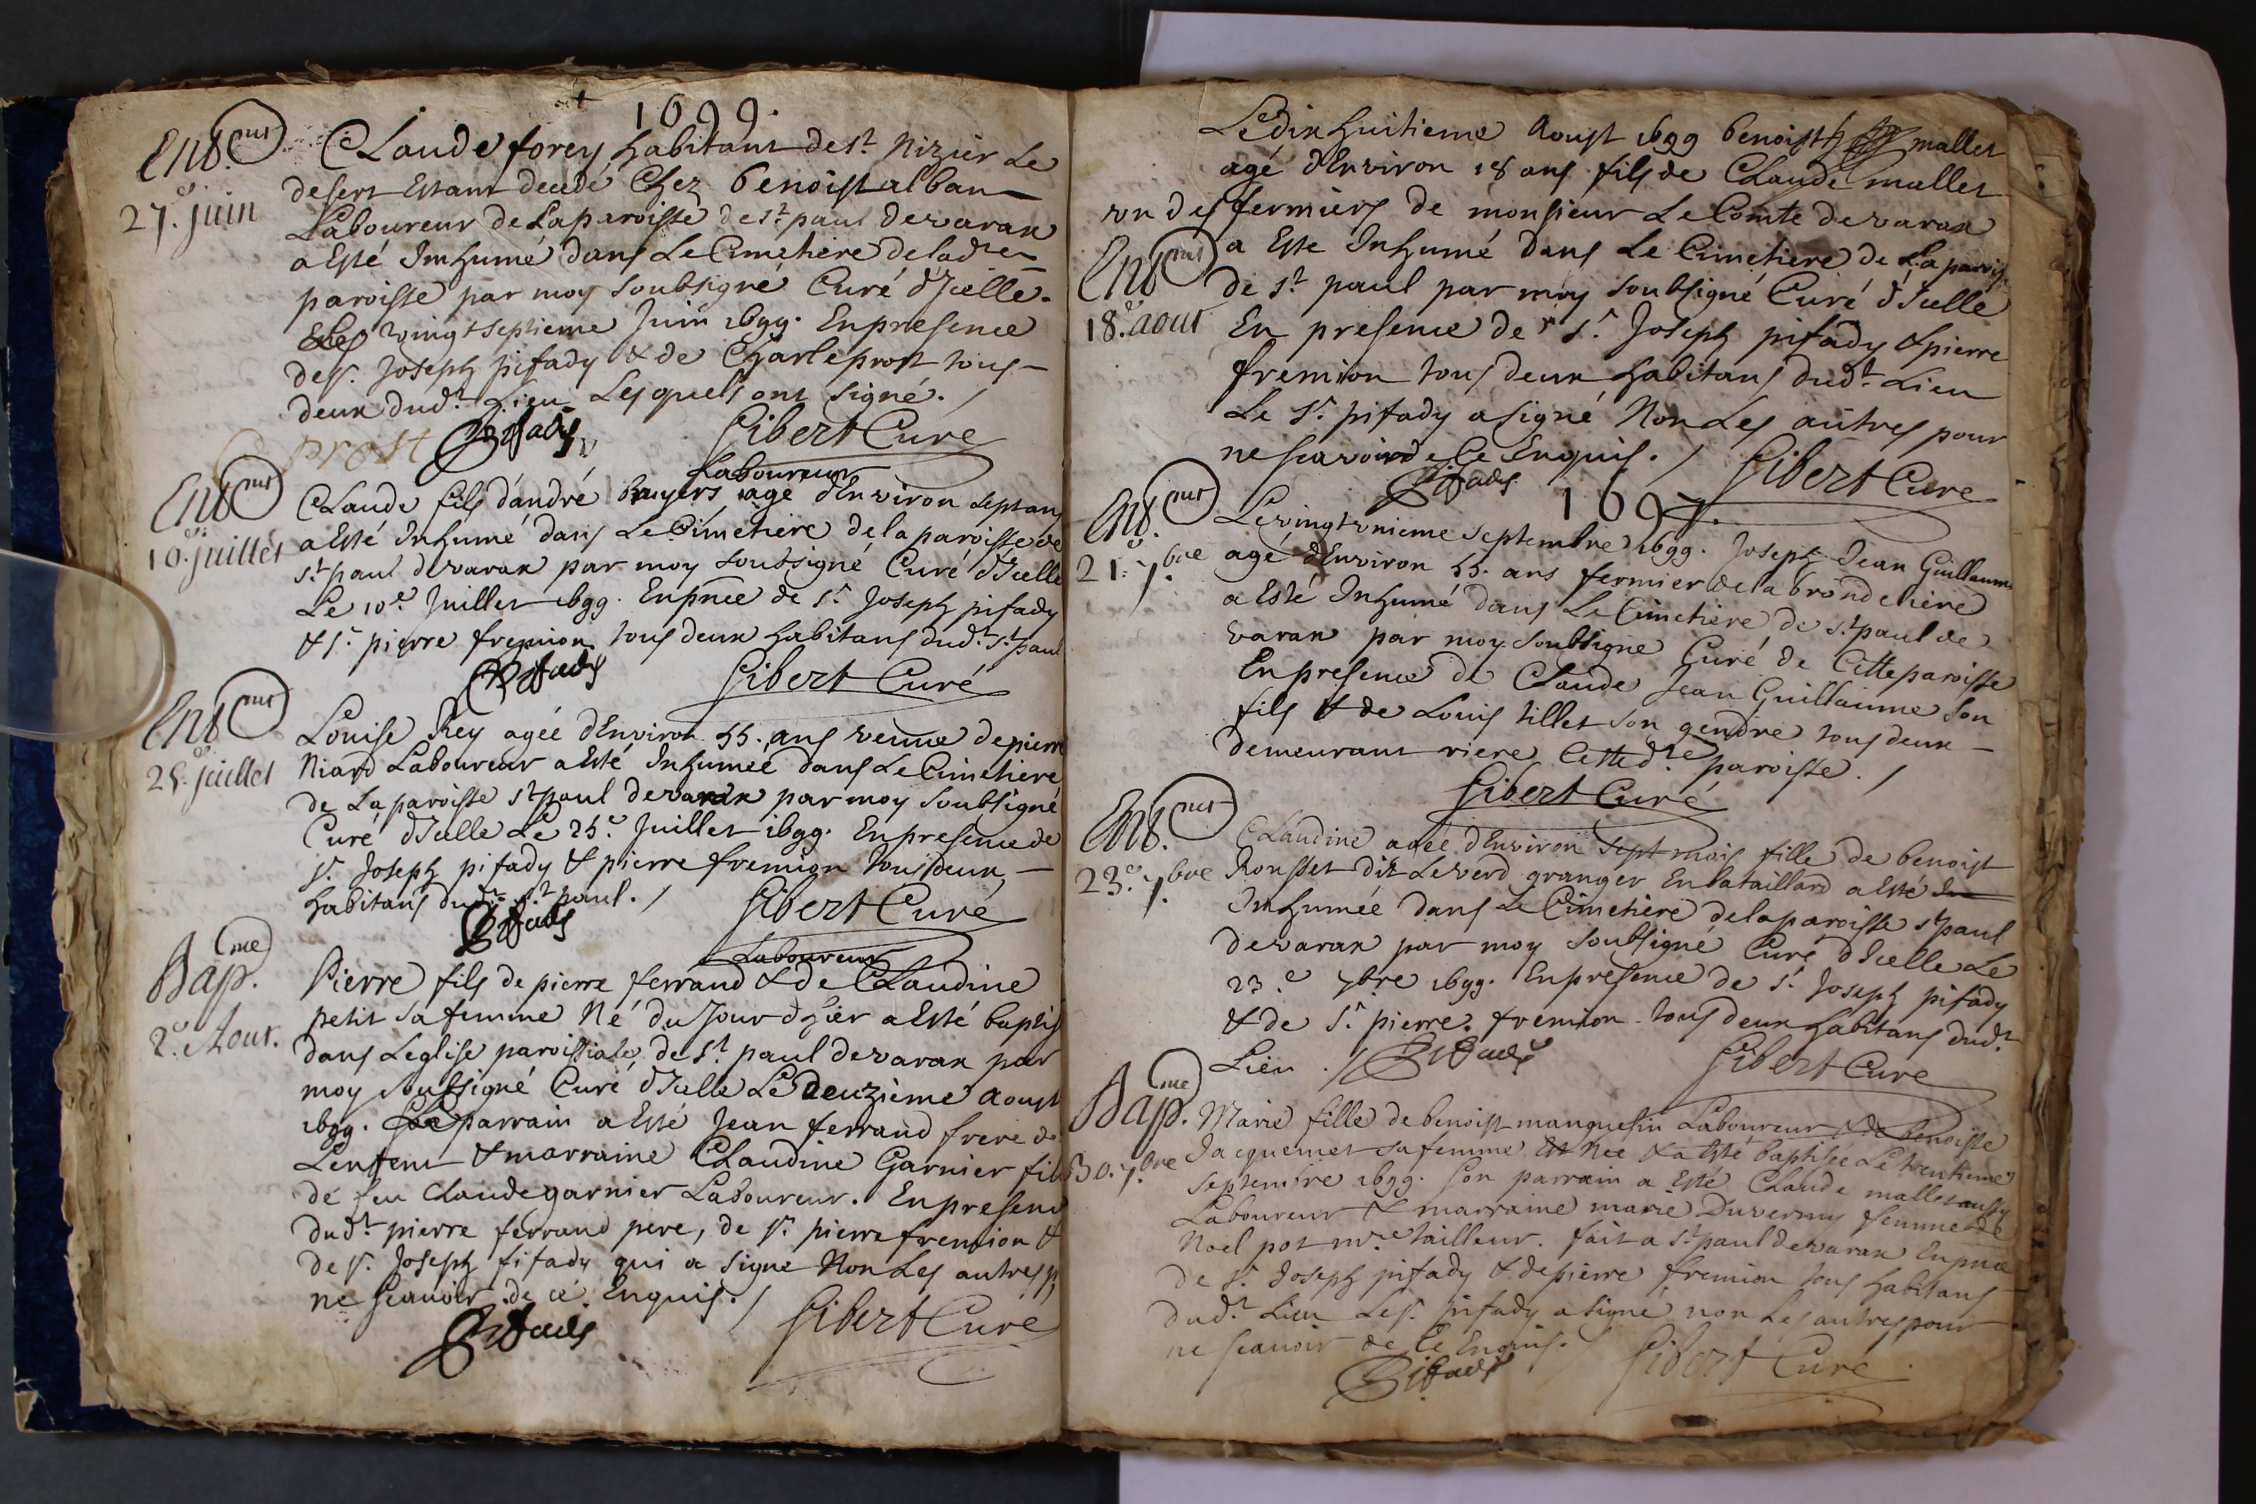 1699.
Ent.ment
27.e juin
Claude forey habitant de st. Nizier Le
desert Estant decedé Chez benoist alban
Laboureur de La paroisse de st. paul de varax
a Esté Inhumé dans Le Cimetiere de lad.te
paroisse par moy soubsigné Curé d'Icelle.
Le vingt septieme Juin 1699. En presence
de sr. Joseph pifady & de Charle prost tous
deux dud.t Lieu Lesquels ont signé. /
C prost Pifady Gibert Curé
Ent.ment
10.e juillet
Laboureur
Claude fils d'andré bruyers agé d'Environ sept ans
a Esté Inhumé dans Le Cimetiere de la paroisse de
st. paul de varax par moy soubsigné Curé d'Icelle
Le 10.e Juillet 1699. En pnce de sr. Joseph pifady
& sr. pierre fremion tous deux habitans dud.t st. paul
Pifady Gibert Curé
Ent.ment
25.e juillet
Louise Rey ageé d'Environ 55. ans veuve de pierre
Niard Laboureur a Esté Inhumeé dans Le Cimetiere
de La paroisse st. paul de varax par moy soubsigné
Curé d'Icelle Le 25.e Juillet 1699. En presence de
sr. Joseph pifady & pierre fremion tous deux
habitans dud.t st. paul. /
Pifady Gibert Curé
Bap.me
2.e Aout.
Laboureur
Pierre fils de pierre ferrand & de Claudine
petit sa femme Né du Jour d'hier a Esté baptis
dans Leglise paroissiale de st. paul de varax par
moy soubsigné Curé d'Icelle Le deuzieme aoust
1699. parrain a Esté Jean ferrand frere de
L'enfent & marraine Claudine Garnier fil
de feu Claude garnier Laboureur. En presenc
dud.t pierre ferrand pere, de sr. pierre fremion &
de sr. Joseph pifady qui a signé Non Les autres p
ne scavoir de ce Enquis. /
Pifady Gibert Curé
Ent.ment
18.e aout
Le dix huitieme Aoust 1699 benoist mallet
agé d'Environ 18 ans fils de Claude mallet
un des fermiers de monsieur Le Comte de varax
a Esté Inhumé dans Le Cimetiere de La paroisse
de st. paul par moy soubsigné Curé d'Icelle
En presence de sr. Joseph pifady & pierre
fremion tous deux habitans dud.t Lieu
Le sr. pifady a signé Non Les autres pour
ne scavoir de Ce Enquis. /
Pifady Gibert Curé
1699.
Ent.ment
21.e 7.bre
Le vingt unieme septembre 1699. Joseph Jean Guillaume
agé d'Environ 55. ans fermier de la brondeliere
a Esté Inhumé dans Le Cimetiere de st. paul de
varax par moy soubsigné Curé de Cette paroisse
En presence de Claude Jean Guillaume son
fils & de Louis tillet son gendre tous deux
demeurant riere Cette d.te paroisse. /
Gibert Curé
Ent.ment
23.e 7.bre
Claudine ageé d'Environ sept mois fille de benoist
Rousset dit Leverd granger En bataillard a Esté
Inhumeé dans Le Cimetiere de la paroisse st. paul
de varax par moy soubsigné Curé d'Icelle Le
23.e 7bre 1699. En presence de sr. Joseph pifady
& de sr. pierre fremion tous deux habitans dud.t
Lieu. / Pifady Gibert Curé
Bap.me
30. 7.bre
Marie fille de benoist manguelin Laboureur & de benoiste
Jacquemet sa femme Est Neé & a Esté baptiseé Le trentieme
septembre 1699. son parrain a Esté Claude mallet aussy
Laboureur & marraine marie Duvernay femme de
Noel pot m.re tailleur. fait a st. paul de varax En pnce
de sr. Joseph pifady & de pierre fremion tous habitans
dud.t Lieu Le sr. pifady a signé non Les autres pour
ne scavoir de Ce Enquis. /
Pifady Gibert Curé